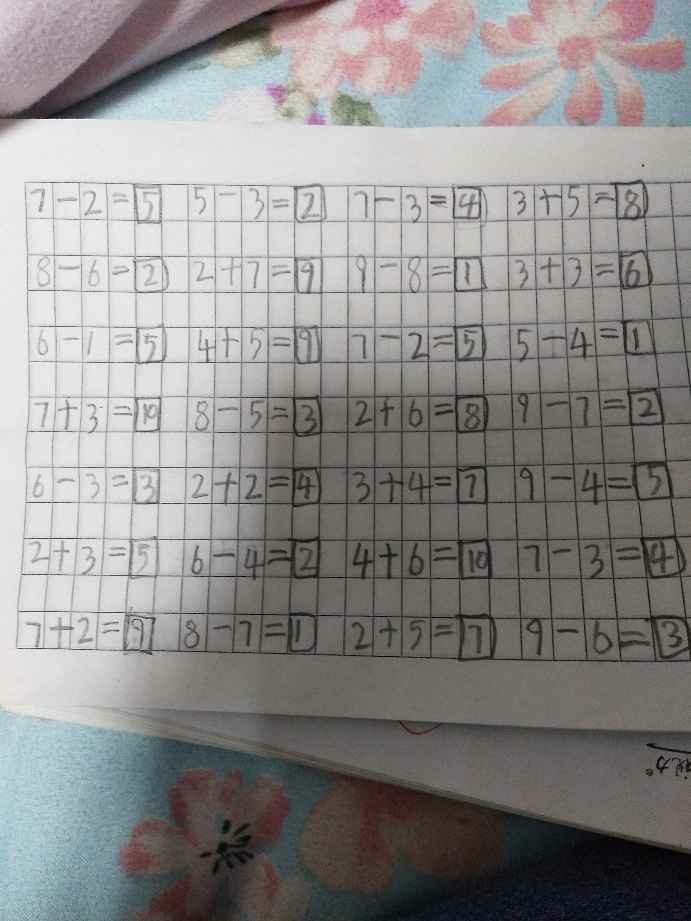 7-2=5 5-3=2 7-3=4 3+5=8
8-6=2 2+7=9 9-8=1 3+3=6
6-1=5 4+5=9 7-2=5 5-4=1
7+3=10 8-5=3 2+6=8 9-7=2
6-3=3 2+2=4 3+4=7 9-4=5
2+3=5 6-4=2 4+6=10 7-3=4
7+2=9 8-7=1 2+5=7 9-6=3